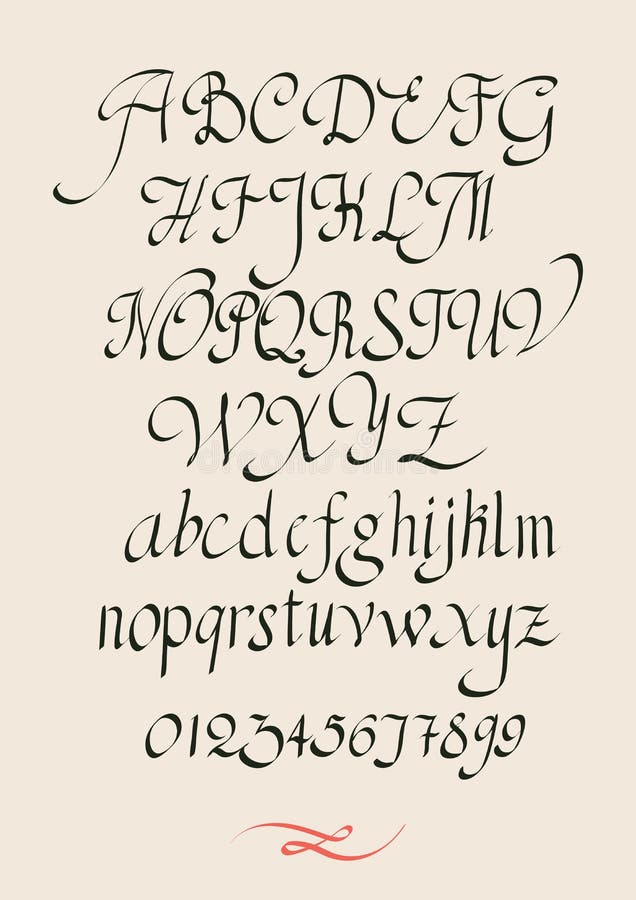 ABCDEFG
HIJKLM
NOPQRSTUV
WXYZ
dreamstime
abcdefghijklm
nopqrstuvwxyz
012345677899